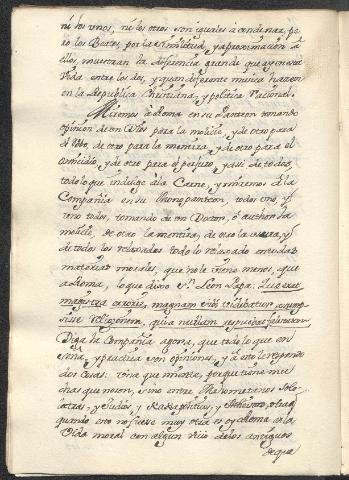 ni los vnos, ni los otros son iguales à condenar, pe
ro los Botes, por la similitud, y aproximacion à
ellos, muestran la diferencia grande que ay en esta
Vida entre los dos, y quan diferente musica hazen
en la Republica Christiana, y politica Racional.
Miremos à Roma en su Panteon tomando
opinion de un Dios para la molicie, y de otro para
el Vtto, de otro para la mentira, y de otro para el
omicidio, y de otro para el perjuro, y assi de todos
todo lo que indulge à la Carne, y miremos à la
Compañia en su Monopanteon, todos vno, y
vno todos, tomando de vn Doctor, ò author la
molicie, de otro la mentira, de otro la y
de todos los relaxados todo lo relaxado en todas
materias morales, que no le viene menos, que
a Roma, lo que dixo Sn. Leon Papa: 
magistra erroris, magnam sibi videbatur assump
sisse religionem, quia nullam respuebat falsitatem
Diga la Compañia agora, que todo lo que en
seña, y practica son opiniones, y à esto le respondo
dos cosas. Vna que miente, porque tiene mu
chas que no son, sino entre Mahometanos Ido
latras, y Judios, y y Atheistas, otra q
quando esto no fuesse muy otra es oy Roma en la
Vida moral con algun vicio de los antiguos
de que